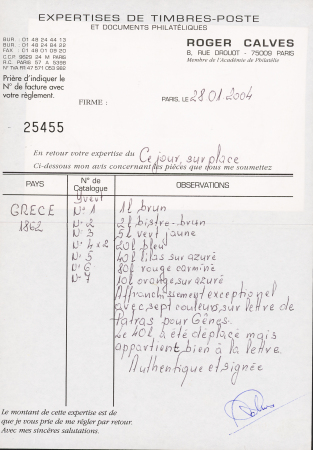 EXPERTISES DE TIMBRES-POSTE
ET DOCUMENTS PHILATÉLIQUES
BUR. : 01 48 24 44 13
BUR. : 01 48 24 84 22
FAX : 01 48 01 09 20
C.C.P. 9629 24 M PARIS
R.C. PARIS 57 A 5398
N° TVA FR 47 571 053 982
ROGER CALVES
8, RUE DROUOT - 75009 PARIS
Membre de l'Académie de Philatélie
Prière d'indiquer le
N° de facture avec
votre règlement.
FIRME :
PARIS, LE 28 01 2004
25455
En retour votre expertise du Ce jour, sur place
Ci-dessous mon avis concernant les pièces que vous me soumettez
PAYS N° de Catalogue OBSERVATIONS
Yvert
GRECE N° 1 1l brun
1862 N° 2 2l bistre-brun
N° 3 5l vert jaune
N° 4 x 2 20l bleu
N° 5 40l lilas sur azuré
N° 6 80l rouge carminé
N° 7 10l orange, sur azuré
Affranchissement exceptionnel
avec sept couleurs, sur lettre de
Patras pour Gênes.
Le 40l a été déplacé mais
appartient bien à la lettre.
Authentique et signée
Calves
Le montant de cette expertise est de
que je vous prie de me régler par retour.
Avec mes sincères salutations.